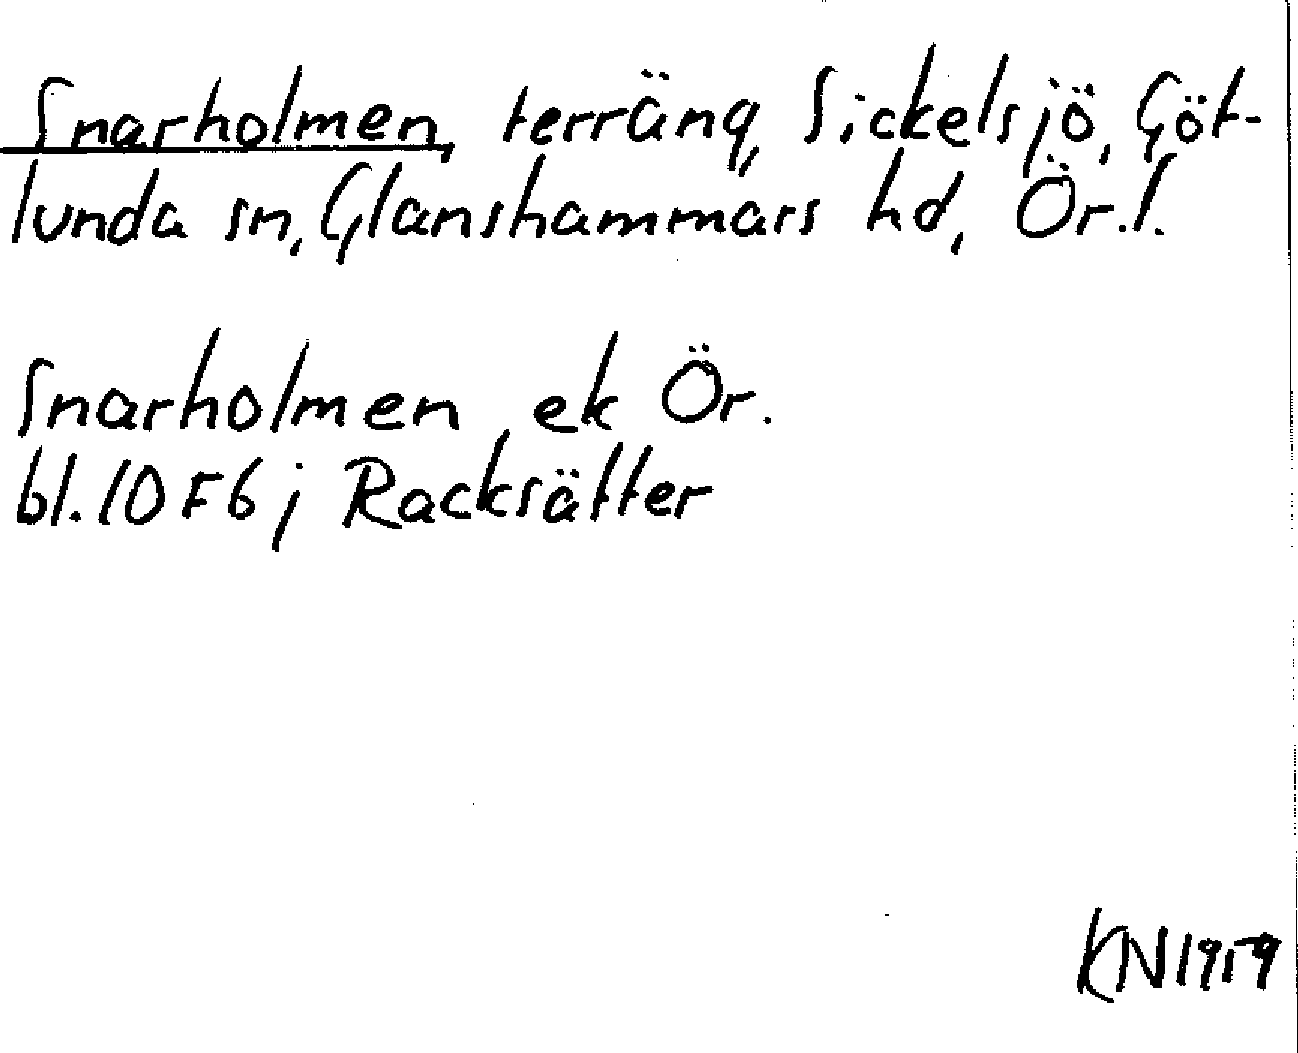 Snarholmen, terräng, Sickelsjö, Göt-
lunda sn, Glanshammars hd, Ör. l.
Snarholmen ek Ör.
bl. 10F6j Racksätter
KN 1959